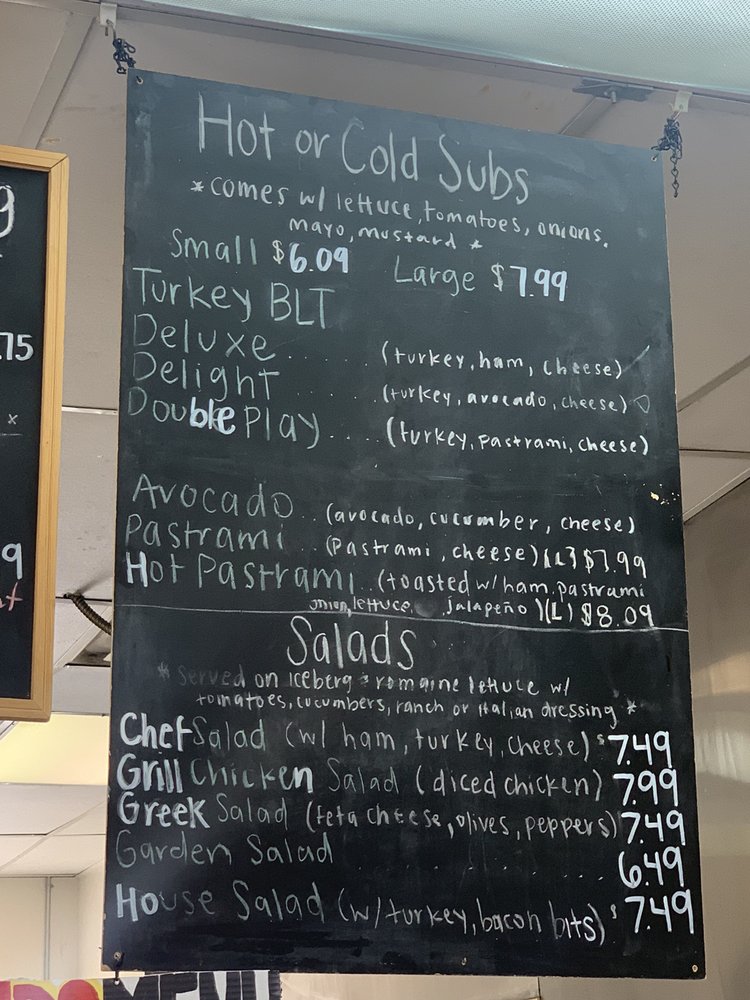 Hot or Cold Subs
*comes w/ lettuce, tomatoes, onions.
mayo, mustard *
Small $6.09 Large $7.99
Turkey BLT
Deluxe .... (turkey, ham, cheese)
Delight .... (turkey, avocado, cheese)
Double Play .... (turkey, pastrami, cheese)
Avocado .. (avocado, cucumber, cheese)
Pastrami .. (Pastrami, cheese) (L) $7.99
Hot Pastrami .. (toasted w/ ham, pastrami
onion, lettuce, jalapeño) (L) $8.09
Salads
* served on Iceberg & romaine lettuce w/
tomatoes, cucumbers, ranch or Italian dressing *
Chef Salad (w/ ham, turkey, cheese) $7.49
Grill Chicken Salad (diced chicken) 7.99
Greek Salad (feta cheese, olives, peppers) 7.49
Garden Salad .......... 6.49
House Salad (w/ turkey, bacon bits) $7.49
.75
x
9
MENU